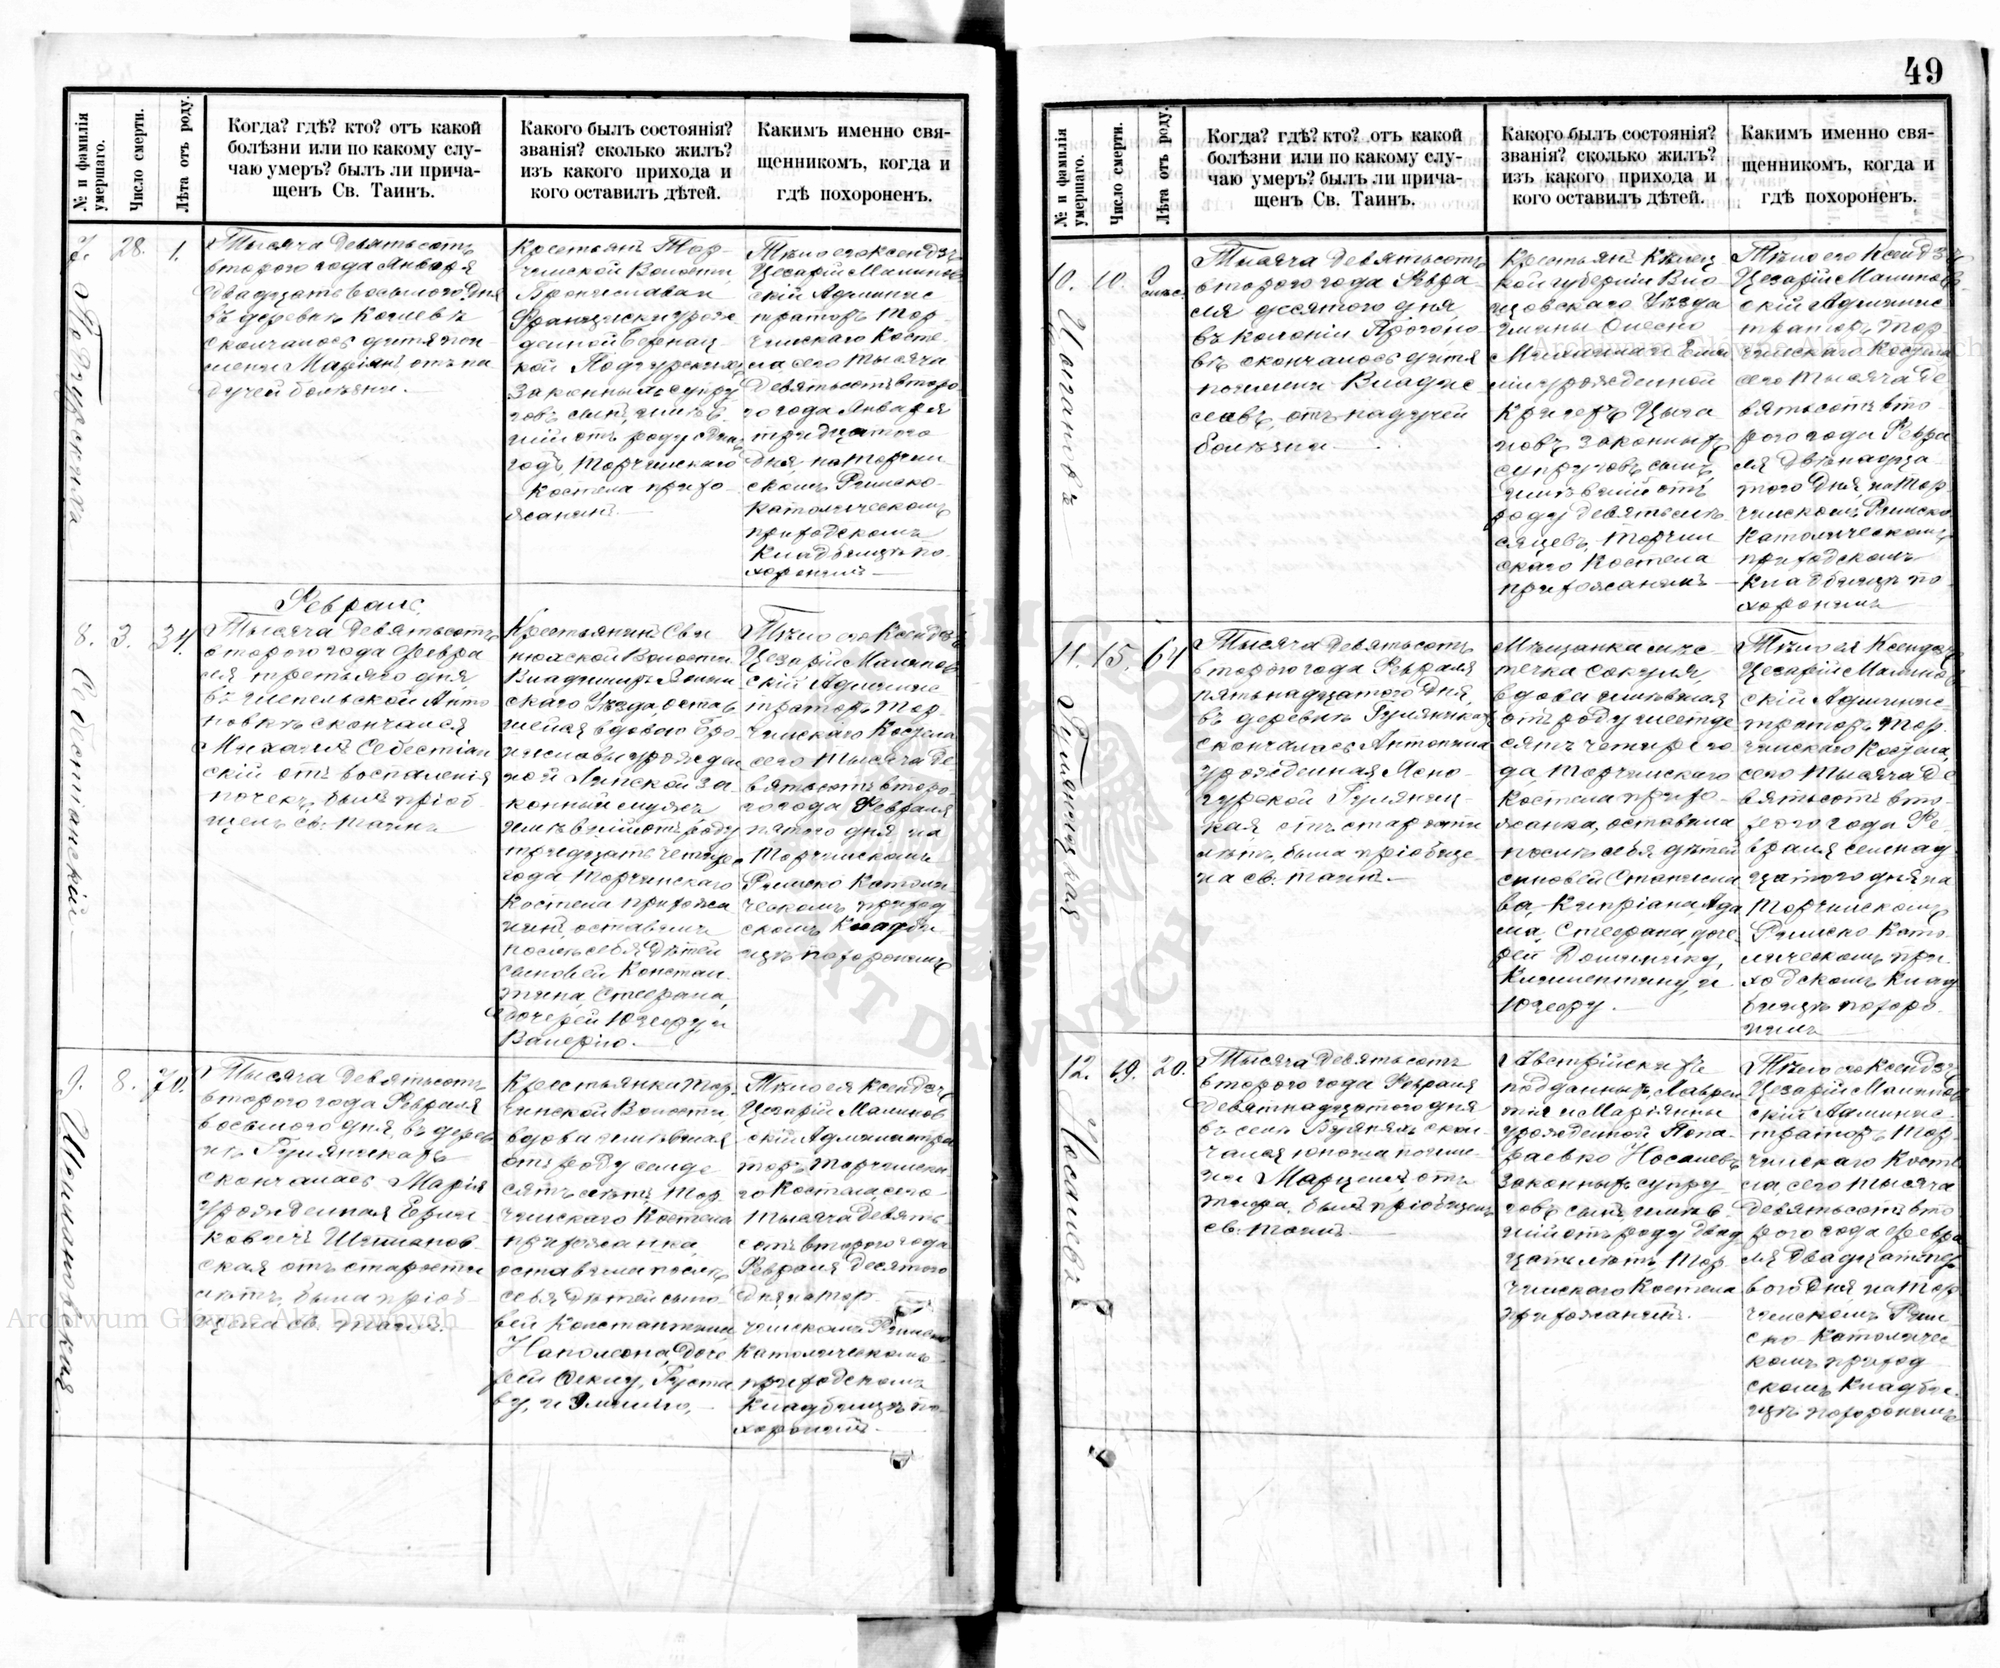 49
№ и фамилія умершаго.
Число смерти.
Лѣта отъ роду.
Когда? гдѣ? кто? отъ какой
болѣзни или по какому слу-
чаю умеръ? былъ ли прича-
щенъ Св. Таинъ.
Какого былъ состоянія?
званія? сколько жилъ?
изъ какого прихода и
кого оставилъ дѣтей.
Какимъ именно свя-
щенникомъ, когда и
гдѣ похороненъ.
7.
28.
1.
Тысяча девятьсотъ
второго года Января
двадцать восьмого дня
въ деревнѣ
скончалось дитя по
имени Маріянъ отъ па
дучей болѣзни.
Крестьянъ Тор-
чинской Волости,
Бронислава и
Франциски урож
денной
законныхъ супру
говъ сынъ, имѣв
шій отъ роду одинъ
годъ, Торчинскаго
Костела прихо-
жанинъ.
Тѣло его Ксендзъ
Цезарій Малинов
скій Админис
траторъ Тор-
чинскаго Косте
ла сего тысяча
девятьсотъ второ
го года Января
тридцатого
дня, на Торчин
скомъ Римско-
католическомъ
приходскомъ
кладбищѣ по-
хоронилъ
Февраль.
8.
3.
34.
Себестіанскій
Тысяча девятьсотъ
второго года Февра
ля третьяго дня,
въ Шепельской Анто
новкѣ скончался
Михаилъ Себестіан
скій отъ воспаленія
почекъ, былъ пріоб
щенъ св. таинъ
Крестьянинъ Сви
нюхской Волости
Владиміръ Волын
скаго Уѣзда, остав
шейся вдовою Бро
ниславы урожден
ной Липской за
конный мужъ
имѣвшій отъ роду
тридцать четыре
года Торчинскаго
Костела прихожа
нинъ, оставилъ
послѣ себя дѣтей
сыновей Констан
тина, Стефана,
дочерей Юзефу и
Валерію.
Тѣло его Ксендзъ
Цезарій Малинов
скій Админис
траторъ Тор-
чинскаго Костела
сего тысяча де
вятьсотъ второ-
го года Февраля
пятого дня на
Торчинскомъ
Римско Католи
ческомъ приход
скомъ кладби
щѣ похоронилъ
9.
8.
70.
Шепмановская
Тысяча девятьсотъ
второго года Февраля
восьмого дня, въ дерев
нѣ Гулянникахъ
скончалась Марія
урожденная
отъ старости
лѣтъ, была пріоб-
щена св. таинъ.
Крестьянка Тор-
чинской Волости,
вдова имѣвшая
отъ роду семде
сятъ лѣтъ Тор
чинскаго Костела
прихожанка,
оставила послѣ
себя дѣтей сыно-
вей Константина,
Наполеона, доче
рей Феклу, Густа
ву, и Эмилію,
Тѣло ея Ксендзъ
Цезарій Малинов
скій Администра
торъ Торчинска
го Костела, сего
тысяча девять-
сотъ второго года
Февраля десятого
дня на Тор-
чинскомъ Римско
католическомъ
приходскомъ
кладбищѣ по-
хоронилъ.
№ и фамилія умершаго.
Число смерти.
Лѣта отъ роду.
Когда? гдѣ? кто? отъ какой
болѣзни или по какому слу-
чаю умеръ? былъ ли прича-
щенъ Св. Таинъ.
Какого былъ состоянія?
званія? сколько жилъ?
изъ какого прихода и
кого оставилъ дѣтей.
Какимъ именно свя-
щенникомъ, когда и
гдѣ похороненъ.
10.
10.
9 мѣс.
Цыгановъ
Тысяча девятьсотъ
второго года Февра-
ля десятого дня,
въ колоніи
скончалось дитя
по имени Владис
лавъ, отъ падучей
болѣзни
Крестьянъ Кѣлец
кой губерніи Вло
щовскаго Уѣзда
гмины Олесно
и Еми
ліи урожденной
Кригеръ Цыга
новъ законныхъ
супруговъ сынъ,
имѣвшій отъ
роду девять мѣ-
сяцевъ, Торчин
скаго Костела
прихожанинъ
Тѣло его Ксендзъ
Цезарій Малинов
скій Админис
траторъ Тор
чинскаго Костела
сего тысяча де
вятьсотъ вто-
рого года Февра
ля двѣнадца-
того дня, на Тор
чинскомъ Римско
Католическомъ
приходскомъ
кладбищѣ по-
хоронилъ
11.
15.
64
Гуляницкая
Тысяча девятьсотъ
второго года Февраля
пятьнадцатого дня,
въ деревнѣ Гулянникахъ
скончалась Антонина
урожденная Ясно-
гурской Гуляниц-
кая отъ старости
лѣтъ, была пріобще-
на св. таинъ.
Мѣщанка мѣс-
течка Сокуля,
вдова имѣвшая
отъ роду шестде
сятъ четыре го
да, Торчинскаго
Костела прихо-
жанка, оставила
послѣ себя дѣтей
сыновей Станисла
ва, Кипріана, Ада
ма, Стефана, доче
рей Доминику,
Климентину, и
Юзефу.
Тѣло ея Ксендзъ
Цезарій Малинов
скій Админис-
траторъ Тор
чинскаго Костела,
сего тысяча де
вятьсотъ вто-
рого года Фе-
враля семнад
цатого дня на
Торчинскомъ
Римско Като-
лическомъ при-
ходскомъ клад
бищѣ похоро-
нилъ
12.
19.
20.
Носалевъ
Тысяча девятьсотъ
второго года Февраля
девятнадцатого дня
въ селѣ Буянахъ скон-
чался юноша по име-
ни Марцелій, отъ
тифа, былъ пріобщенъ
св. таинъ.
Австрійскихъ
подданныхъ, Маврен
тія и Маріянны
урожденной Попа-
раевко Носалевъ
законныхъ супру
говъ сынъ, имѣв
шій отъ роду двад
цать лѣтъ, Тор
чинскаго Костела
прихожанинъ.
Тѣло его Ксендзъ
Цезарій Малинов
скій Админис
траторъ Тор-
чинскаго Косте
ла, сего тысяча
девятьсотъ вто
рого года Февра
ля двадцать пер
вого дня на Тор
чинскомъ Рим
ско Католичес
комъ приход
скомъ кладби
щѣ похоронилъ
Archiwum Główne Akt Dawnych
Archiwum Główne Akt Dawnych